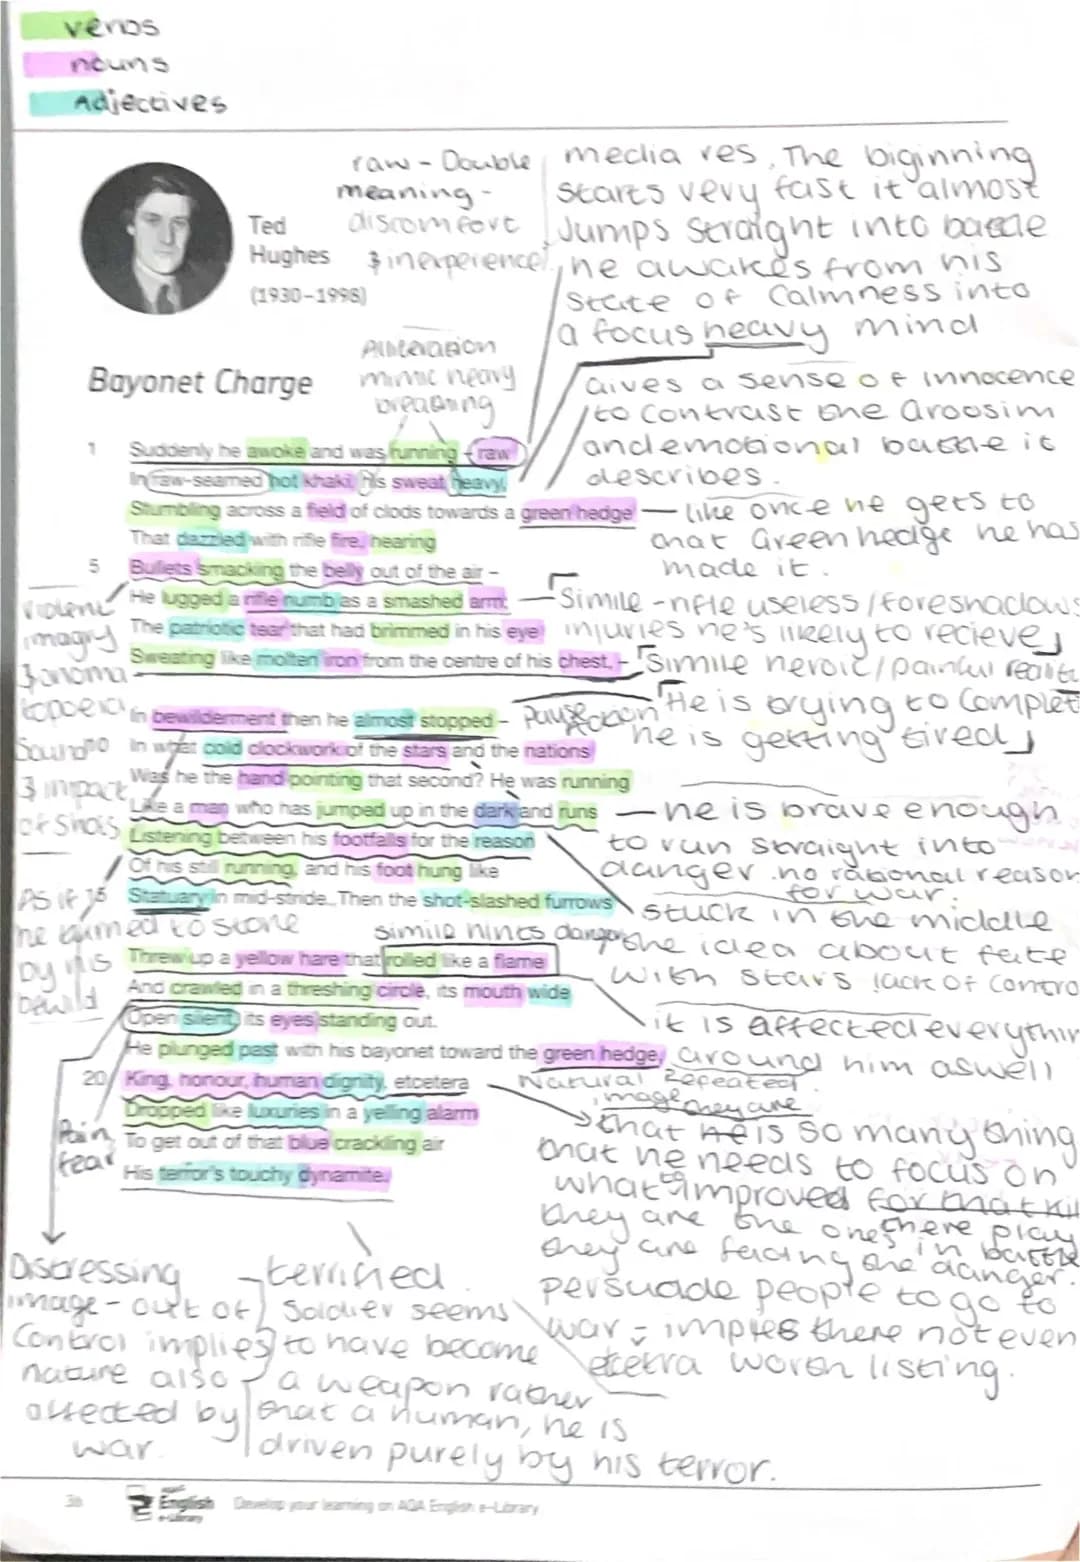 verbs
nouns
Adjectives
raw - Double
meaning -
discomfort
& inexperience.
media res, The biginning
starts very fast it almost
Jumps straight into battle
he awakes from his
state of calmness into
a focus heavy mind
Ted
Hughes
(1930–1998)
Bayonet Charge
Alliteration
mimic heavy
breathing
Gives a sense of innocence
to contrast the
and emotional battle it
describes.
1 Suddenly he awoke and was running – raw
In raw-seamed hot khaki, his sweat heavy,
Stumbling across a field of clods towards a green hedge
That dazzled with rifle fire, hearing
5 Bullets smacking the belly out of the air –
He lugged a rifle numb as a smashed arm;
The patriotic tear that had brimmed in his eye
Sweating like molten iron from the centre of his chest, –
like once he gets to
that Green hedge he has
made it.
Simile - rifle useless / foreshadows
injuries he's likely to recieve
Simile heroic / painful reality
violent
imagry
& onoma
topoeia
Sound
& impact
of shots
In bewilderment then he almost stopped –
10 In what cold clockwork of the stars and the nations
Was he the hand pointing that second? He was running
Like a man who has jumped up in the dark and runs
Listening between his footfalls for the reason
Of his still running, and his foot hung like
15 Statuary in mid-stride. Then the shot-slashed furrows
Pause
Action
He is trying to Complet
he is getting tired
he is brave enough
to run straight into
danger. no rational reason
for war.
stuck in the middle
the idea about fate
with stars lack of contro
As if
he turned to stone
by his
bewild
simile hints danger
Threw up a yellow hare that rolled like a flame
And crawled in a threshing circle, its mouth wide
Open silent, its eyes standing out.
He plunged past with his bayonet toward the green hedge,
20 King, honour, human dignity, etcetera
Dropped like luxuries in a yelling alarm
To get out of that blue crackling air
His terror's touchy dynamite.
it is affected everythin
around him aswell
Natural Repeated
image
they are
that he is so many thing
that he needs to focus on
what improved for that
they are the ones there play
they are facing the danger.
in battle
persuade people to go to
war - implies there not even
etcetra worth listing.
Pain
fear
Distressing
image - out of
control implies
nature also
affected by
war.
terrified
Soldier seems
to have become
a weapon rather
that a human, he is
driven purely by his terror.
36
English
e-Library
Develop your learning on AQA English e-Library